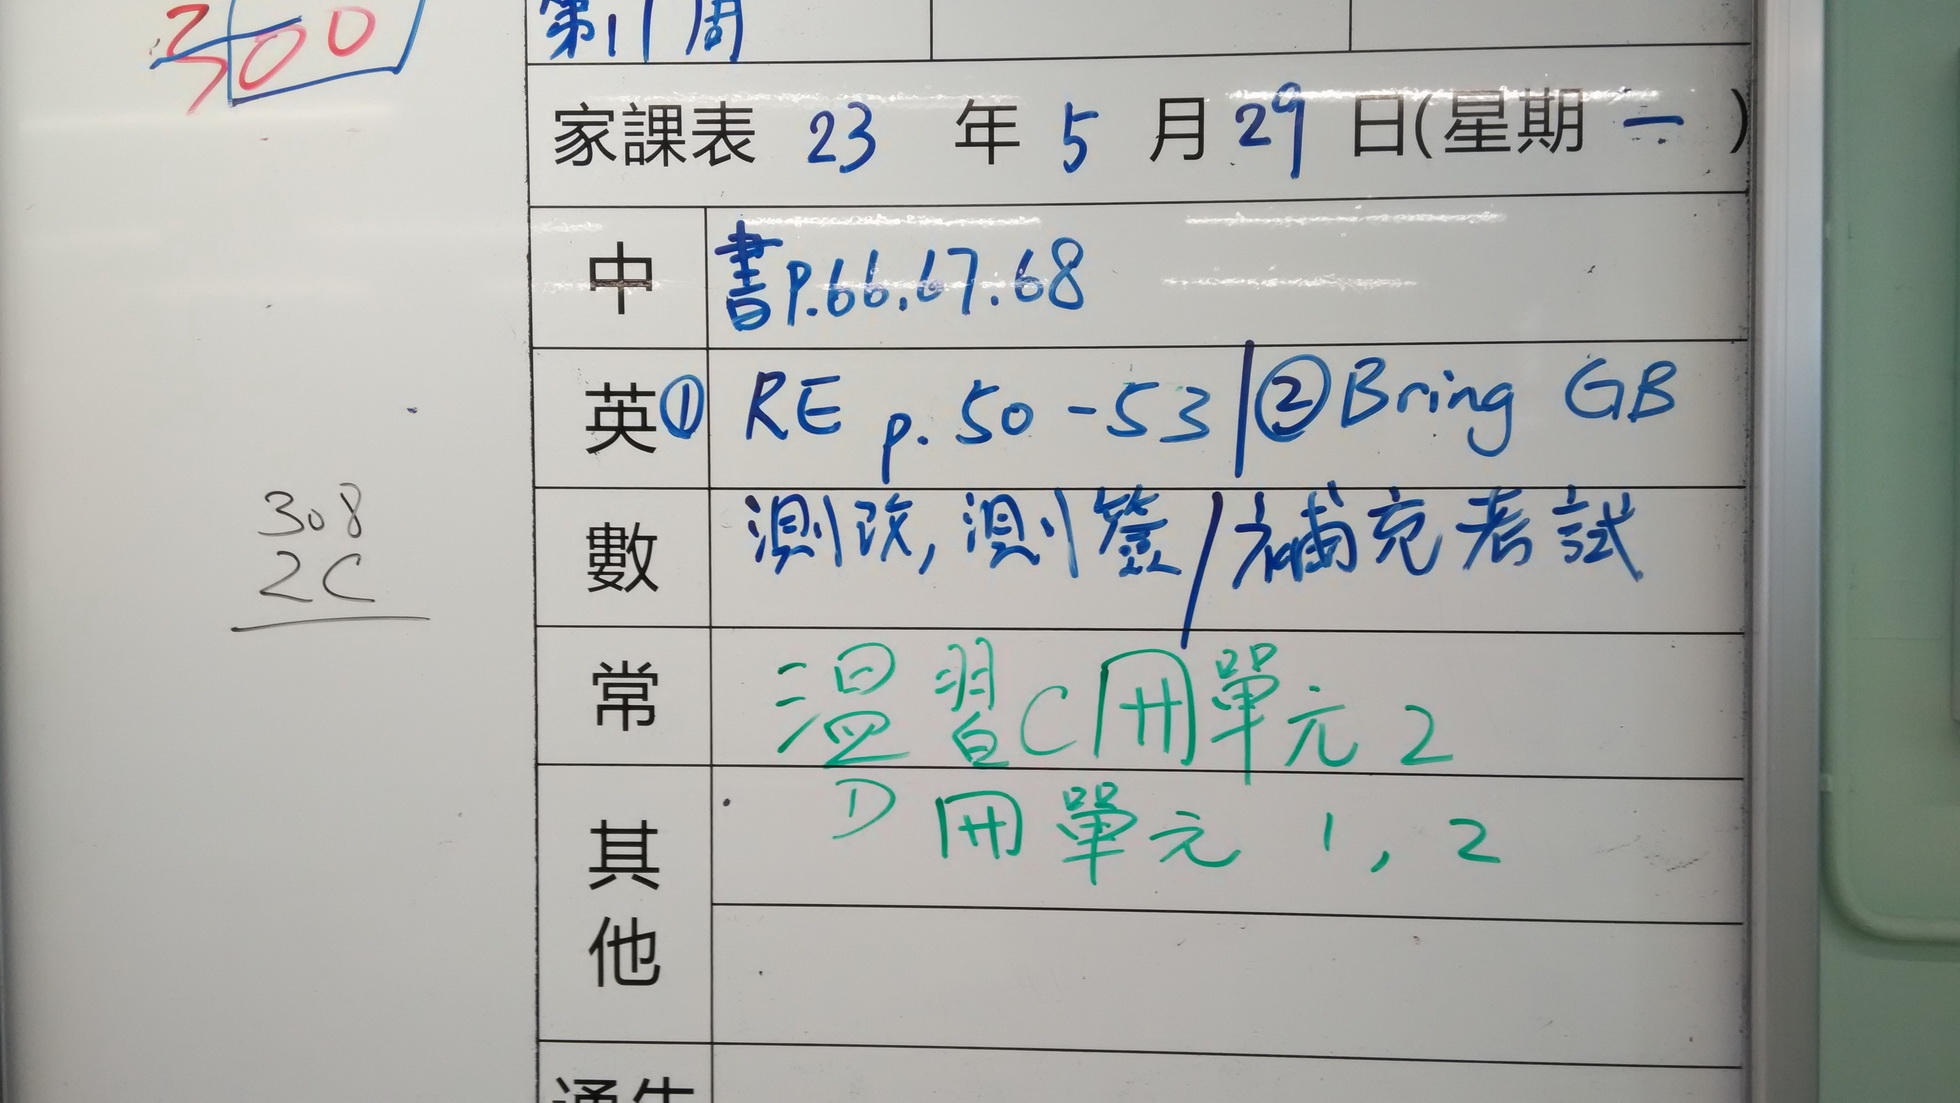 300
第11周
家課表 23 年 5 月 29 日(星期 一 )
中 書P.66.67.68
英 ① RE p.50-53 / ② Bring GB
數 測改, 測簽 / 補充考試
常 溫習C冊單元2
D冊單元 1, 2
其他
通告
308
2C